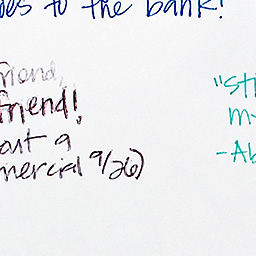 oes to the bank!
friend,
friend!
out a
mercial 9/26)
"sti
m
-Ab